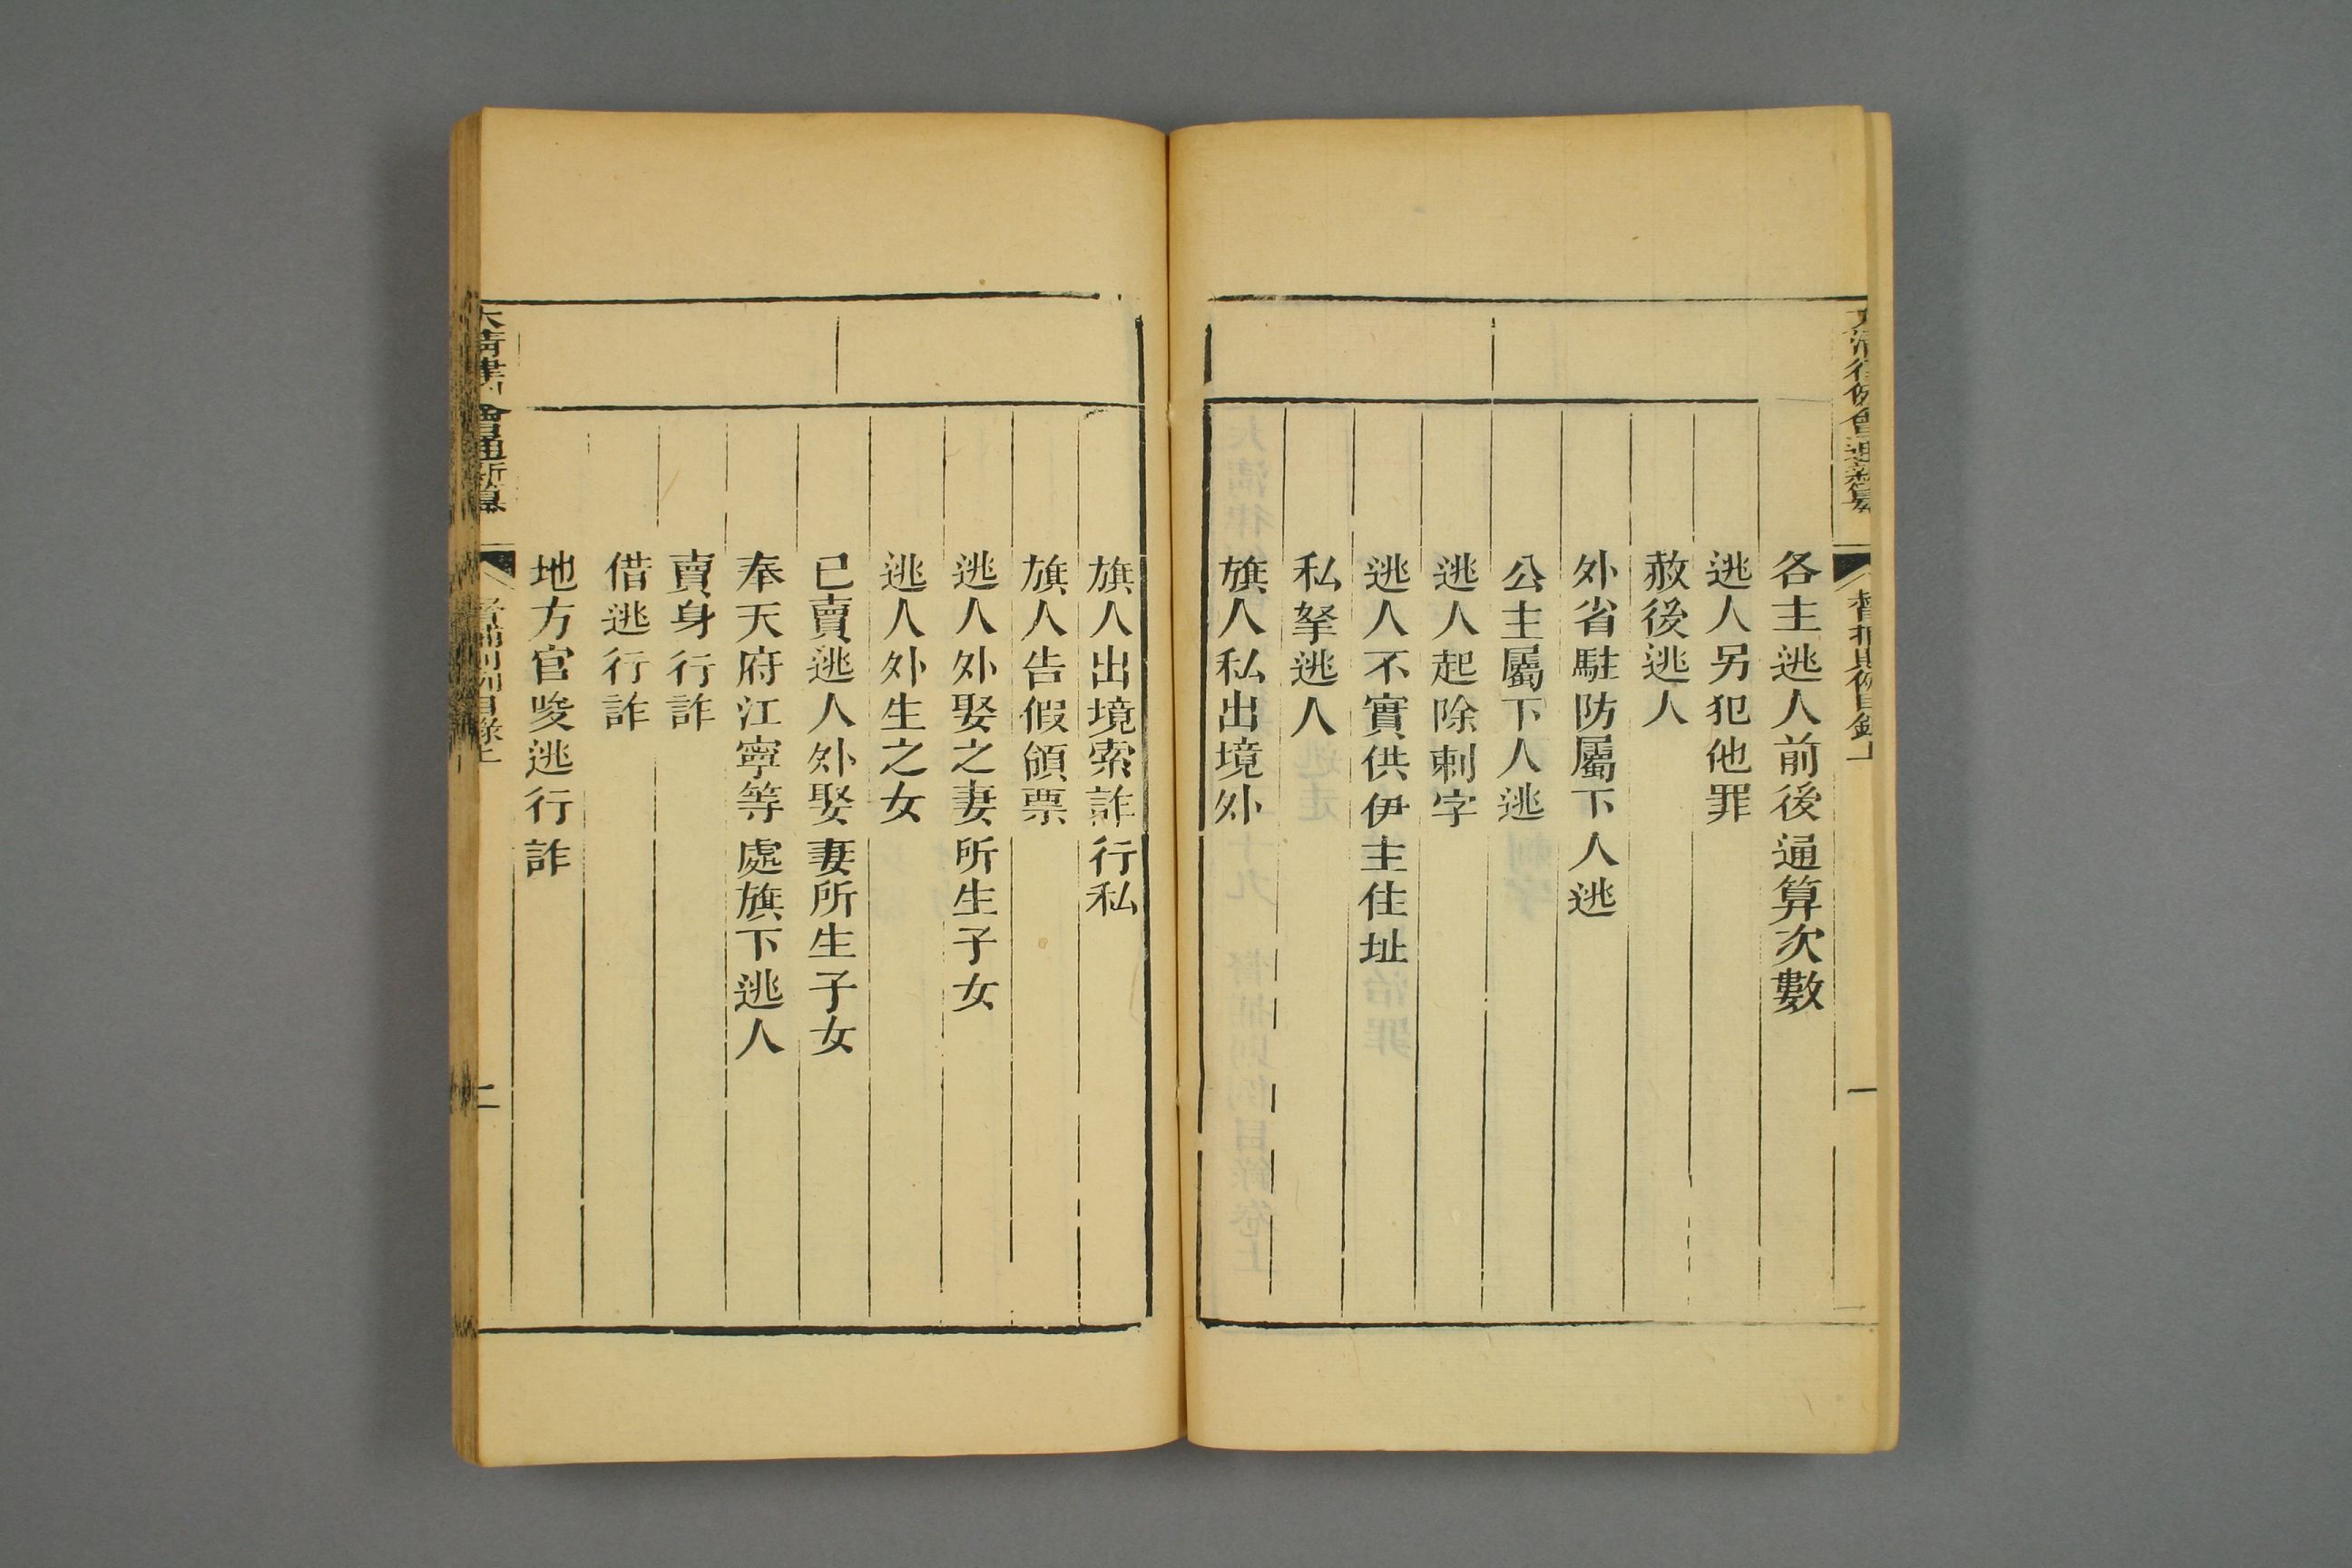 大清律例會通新纂
督捕則例目錄上
一
各主逃人前後通算次數
逃人另犯他罪
赦後逃人
外省駐防屬下人逃
公主屬下人逃
逃人起除刺字
逃人不實供伊主住址
私拏逃人
旗人私出境外
旗人出境索詐行私
旗人告假領票
逃人外娶之妻所生子女
逃人外生之女
已賣逃人外娶妻所生子女
奉天府江寧等處旗下逃人
賣身行詐
借逃行詐
地方官唆逃行詐
大清律例會通新纂
督捕則例目錄上
二